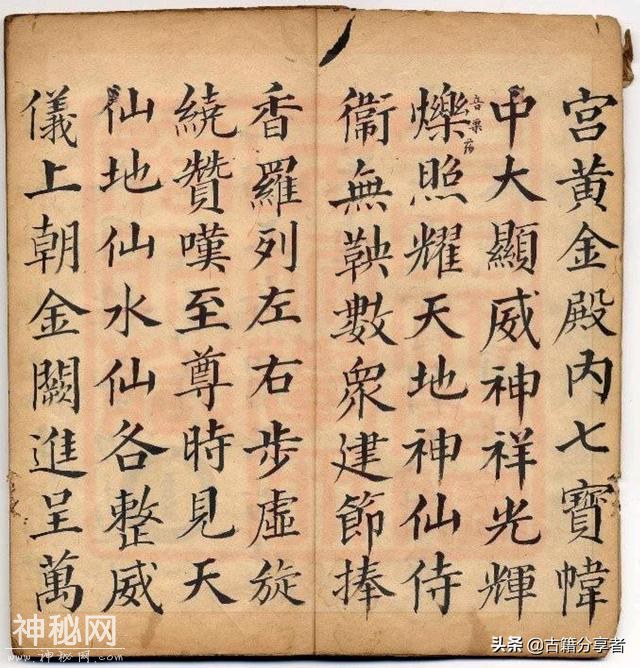 宮黃金殿内七寶幃
中大顯威神祥光輝
爍照耀天地神仙侍
音栗
衞無鞅數衆建節捧
香羅列左右步虛旋
繞贊嘆至尊時見天
仙地仙水仙各整威
儀上朝金闕進呈萬
神秘网
www.shenmiwang.cn
头条 @古籍分享者